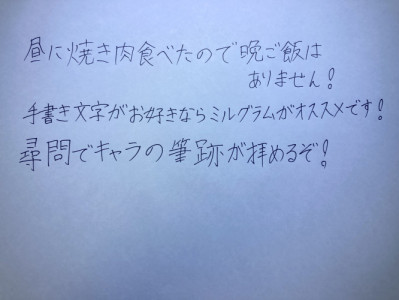 昼に焼き肉食べたので晩ご飯は
ありません!
手書き文字がお好きならミルグラムがオススメです!
尋問でキャラの筆跡が拝めるぞ!